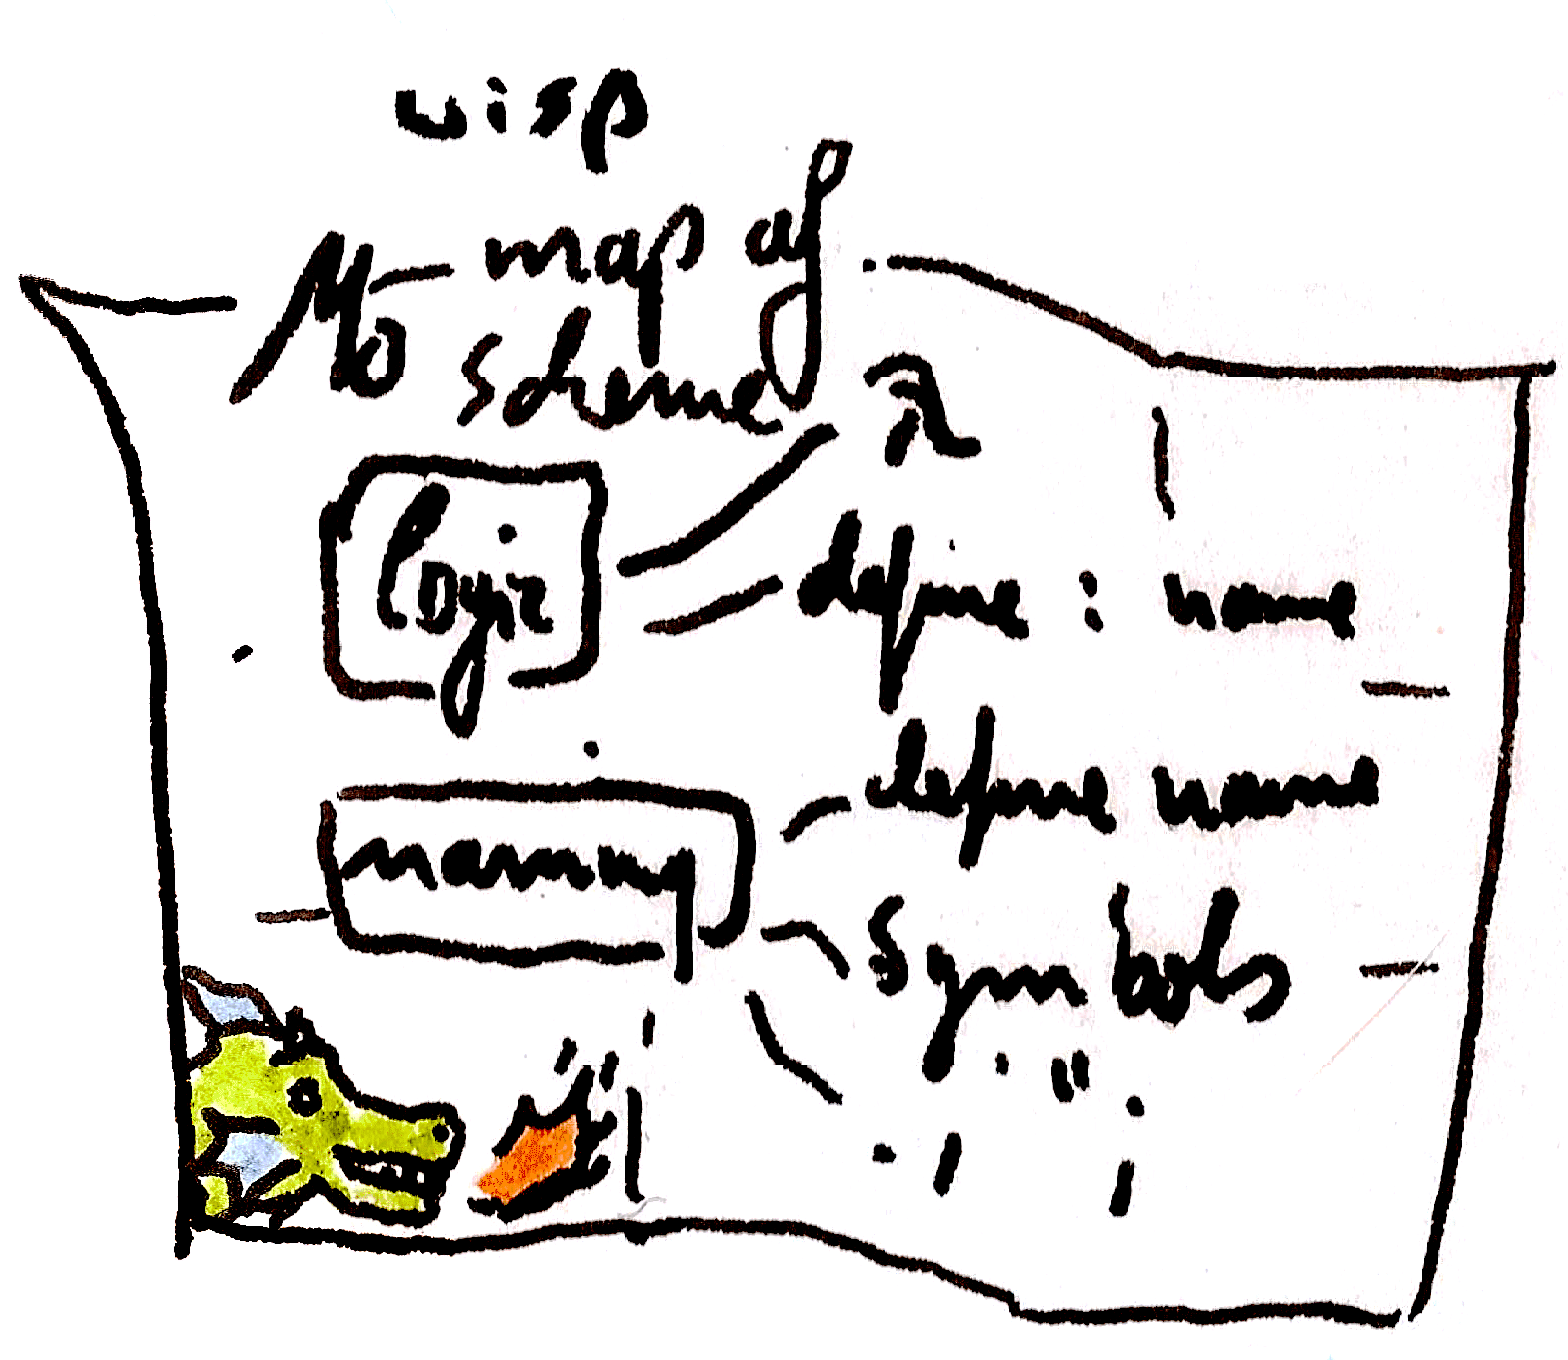 wisp
map of
scheme
λ
logic
define : name
define name
naming
Symbols